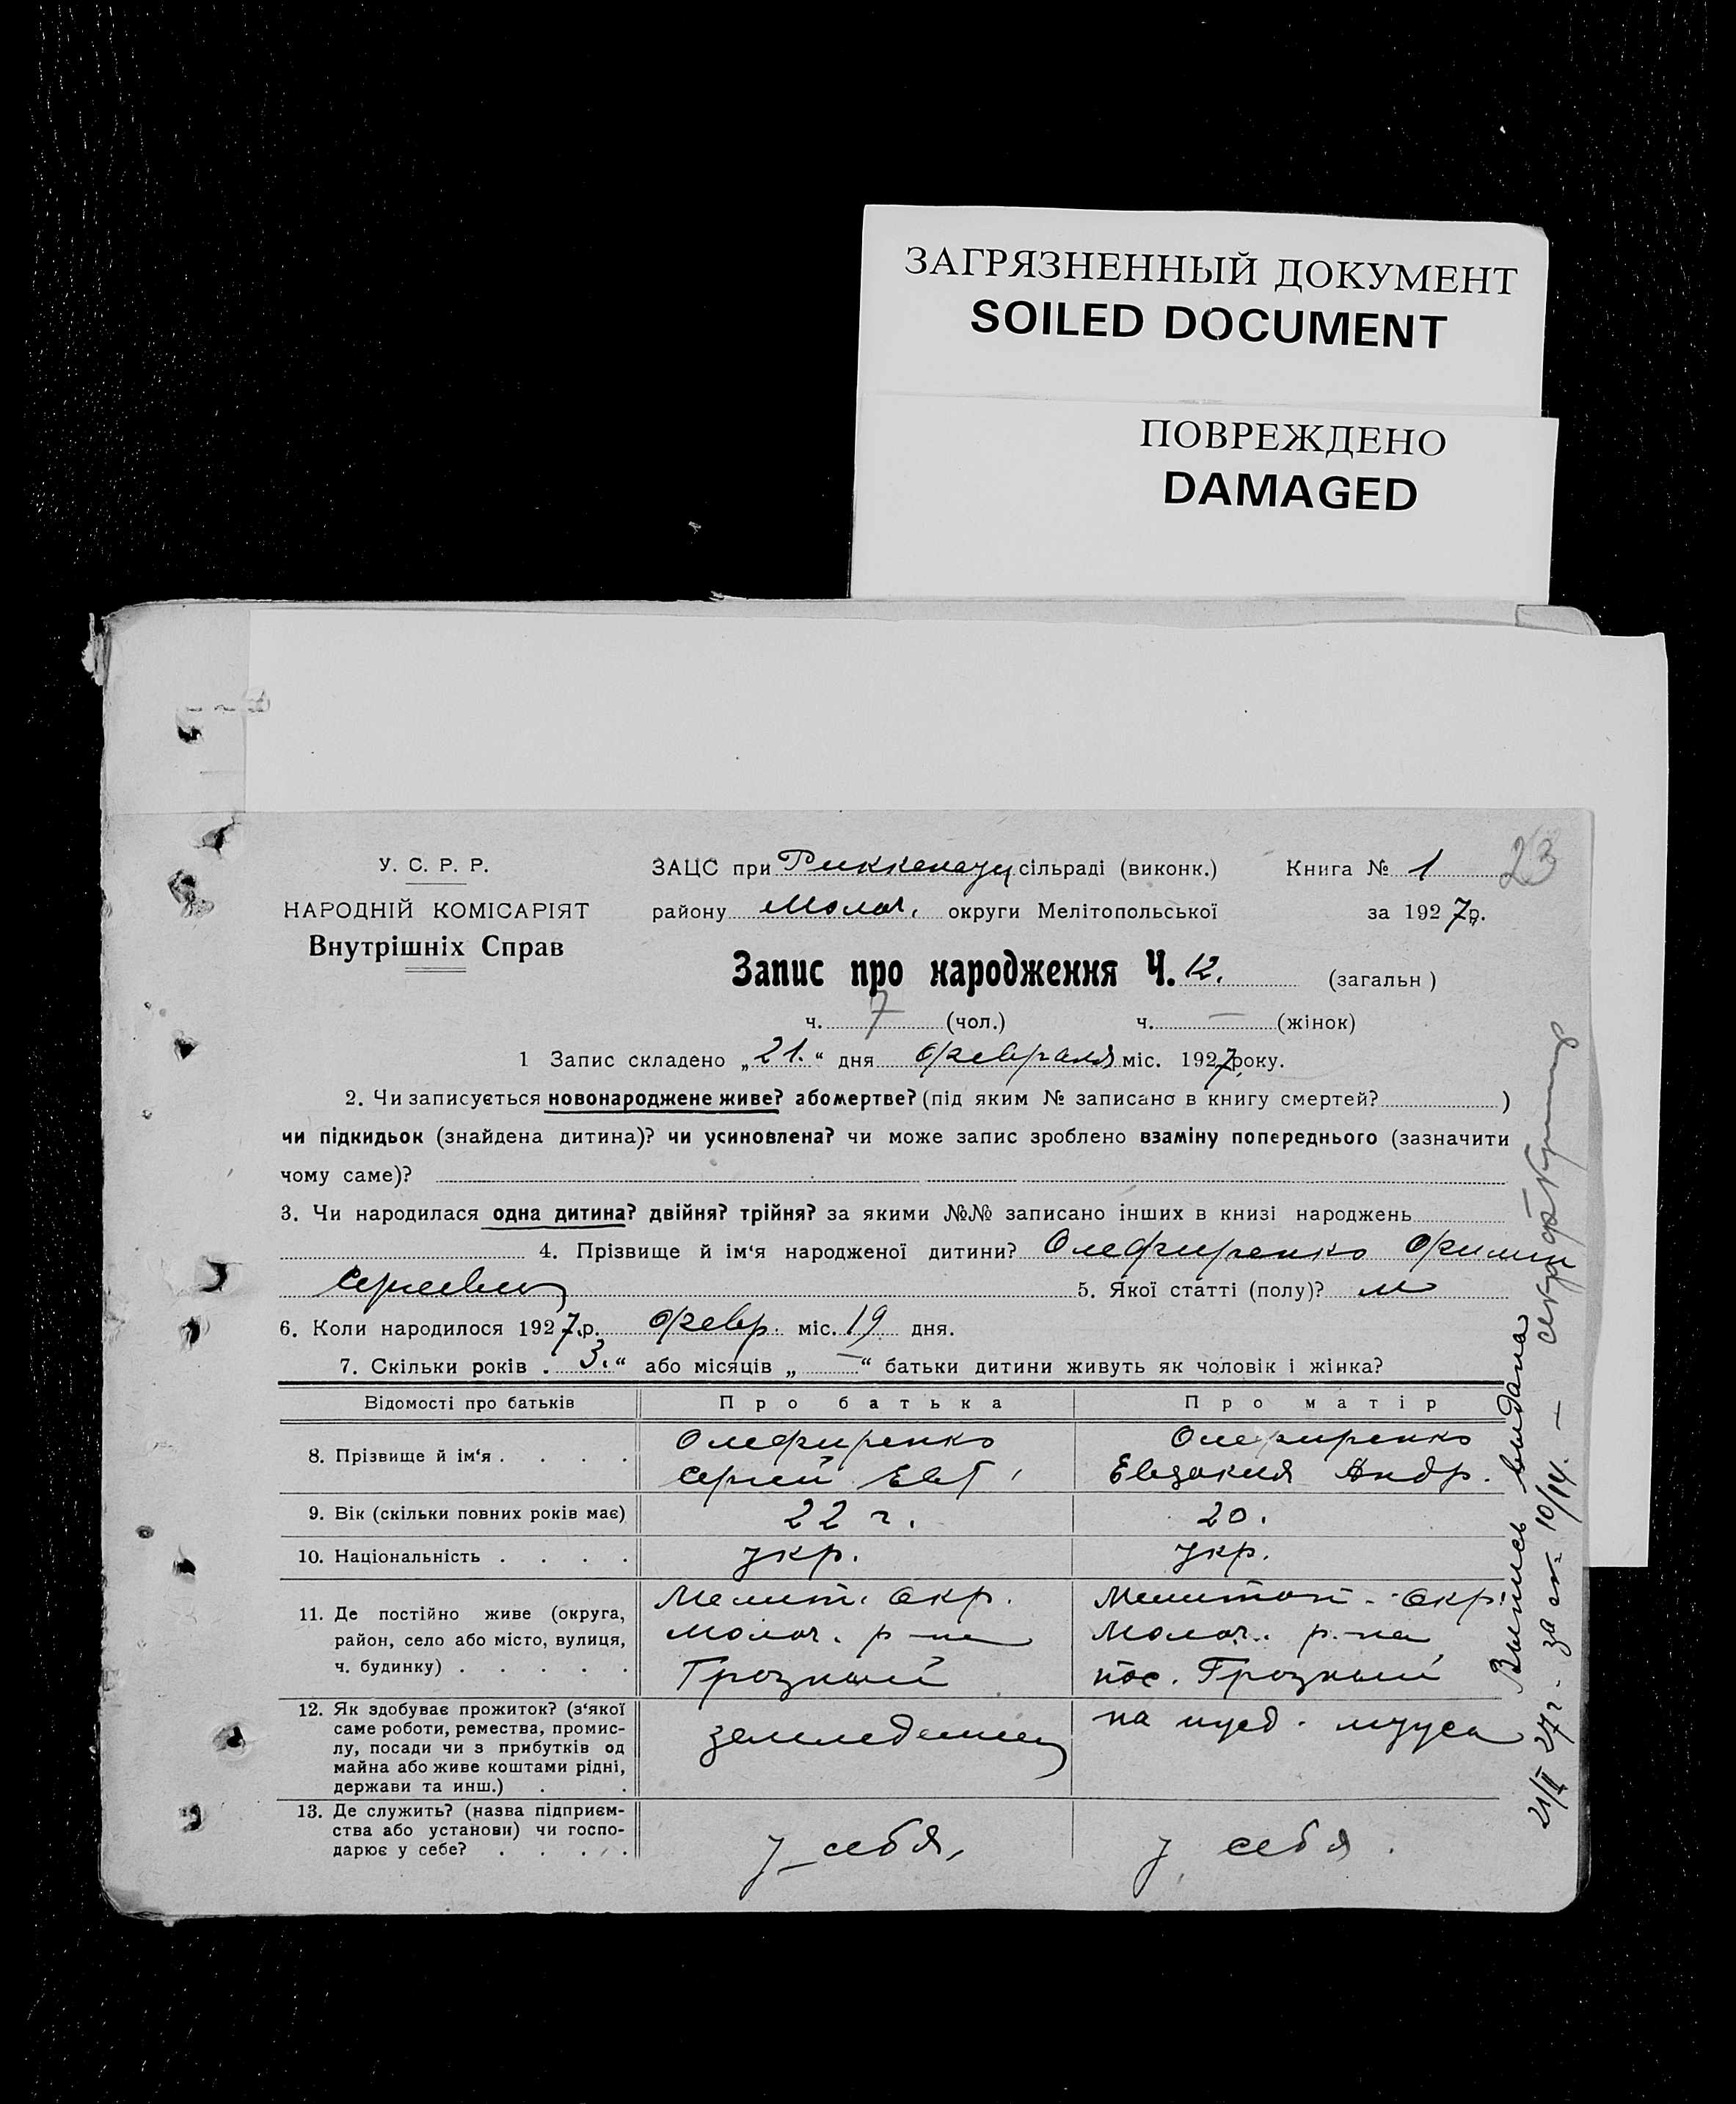 ЗАГРЯЗНЕННЫЙ ДОКУМЕНТ
SOILED DOCUMENT
ПОВРЕЖДЕНО
DAMAGED
23
У. С. Р. Р.
НАРОДНІЙ КОМІСАРІЯТ
Внутрішніх Справ
ЗАЦС при Риккенауц сільраді (виконк.) Книга № 1
району Молоч. округи Мелітопольської за 1927 р.
Запис про народження Ч. 12. (загальн)
ч. 7 (чол.) ч. — (жінок)
1 Запис складено „21.“ дня февраля міс. 1927 року.
2. Чи записується новонароджене живе? або мертве? (під яким № записано в книгу смертей? )
чи підкидьок (знайдена дитина)? чи усиновлена? чи може запис зроблено взаміну попереднього (зазначити
чому саме)?
3. Чи народилася одна дитина? двійня? трійня? за якими №№ записано інших в книзі народжень
4. Прізвище й ім‘я народженої дитини? Олефиренко
Сергеевич 5. Якої статті (полу)? м
6. Коли народилося 1927 р. февр. міс. 19 дня.
7. Скільки років „ 3. “ або місяців „ — “ батьки дитини живуть як чоловік і жінка?
Відомості про батьків Про батька Про матір
8. Прізвище й ім‘я . . . . Олефиренко Сергей Евт. Олефиренко Евдокия Андр.
9. Вік (скільки повних років має) 22 г. 20.
10. Національність . . . . укр. укр.
11. Де постійно живе (округа, Мелит. окр. Мелитоп. окр.
район, село або місто, вулиця, Молоч. р-на Молоч. р-на
ч. будинку) . . . . . Грозный пос. Грозный
12. Як здобуває прожиток? (з‘якої
саме роботи, ремества, промис- земледелец на ижд. мужа
лу, посади чи з прибутків од
майна або живе коштами рідні,
держави та инш.) . .
13. Де служить? (назва підприєм-
ства або установи) чи госпо- у себя, у себя.
дарює у себе? . . . .
Выпись выдана
21/II 27 г. за № 10/14. —